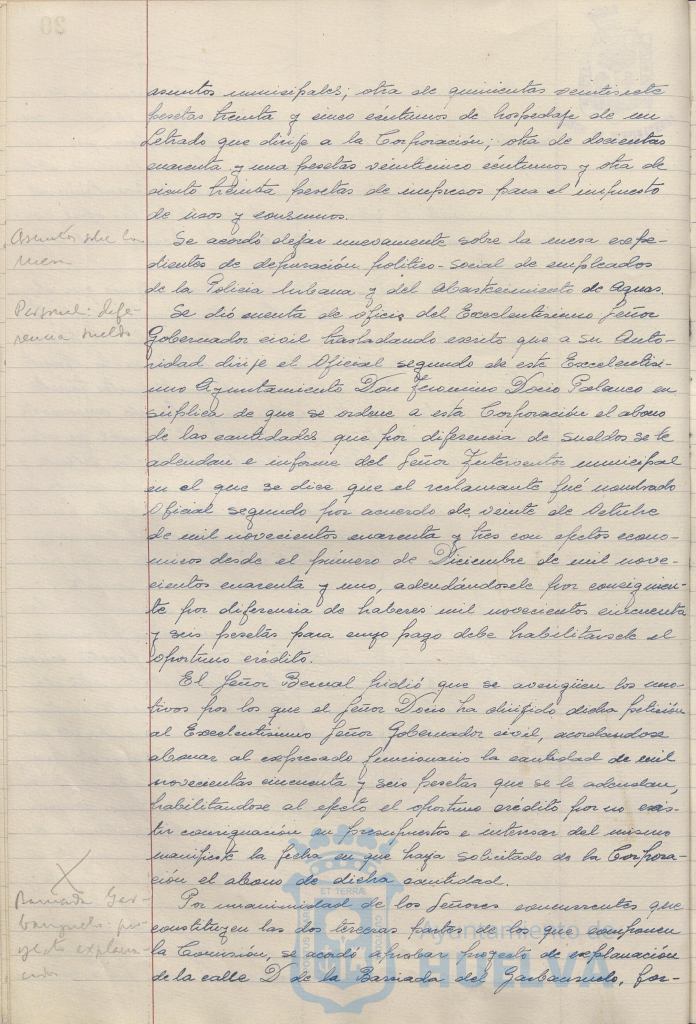 asuntos municipales; otra de quinientas veintisiete
pesetas treinta y cinco céntimos de hospedaje de un
Letrado que dirije a la Corporación; otra de doscientas
cuarenta y una pesetas veinticinco céntimos y otra de
ciento treinta pesetas de impresos para el impuesto
de usos y consumos.
Asuntos sobre la
mesa
Se acordó dejar nuevamente sobre la mesa expe-
dientes de depuración político-social de empleados
de la Policía Urbana y del Abastecimiento de Aguas.
Personal: dife-
rencia sueldo
Se dió cuenta de oficio del Excelentísimo Señor
Gobernador civil trasladando escrito que a su Auto-
ridad dirije el Oficial segundo de este Excelentísi-
mo Ayuntamiento Don Jeronimo Docio Palanco en
súplica de que se ordene a esta Corporación el abono
de las cantidades que por diferencia de sueldos se le
adeudan e informe del Señor Interventor municipal
en el que se dice que el reclamante fué nombrado
Oficial segundo por acuerdo de veinte de Octubre
de mil novecientos cuarenta y tres con efectos econo-
micos desde el primero de Diciembre de mil nove-
cientos cuarenta y uno, adeudándosele por consiguien-
te por diferencia de haberes mil novecientas cincuenta
y seis pesetas para cuyo pago debe habilitarse el
oportuno crédito.
El Señor Bernal pidió que se averigüen los mo-
tivos por los que el Señor Docio ha dirifido dicha petición
al Excelentísimo Señor Gobernador civil, acordandose
abonar al expresado funcionario la cantidad de mil
novecientas cincuenta y seis pesetas que se le adeudan,
habilitandose al efecto el oportuno crédito por no exis-
tir consignación en presupuestos e interesar del mismo
manifieste la fecha en que haya solicitado de la Corpora-
ción el abono de dicha cantidad.
X
Barriada Gar-
banzuelo: pro-
yecto explana-
ción
Por unanimidad de los Señores concurrentes que
constituyen las dos terceras partes de los que componen
la Comisión, se acordó aprobar proyecto de explanación
de la calle D de la Barriada del Garbanzuelo, for-
ET TERRÆ
Ayuntamiento de
HUELVA